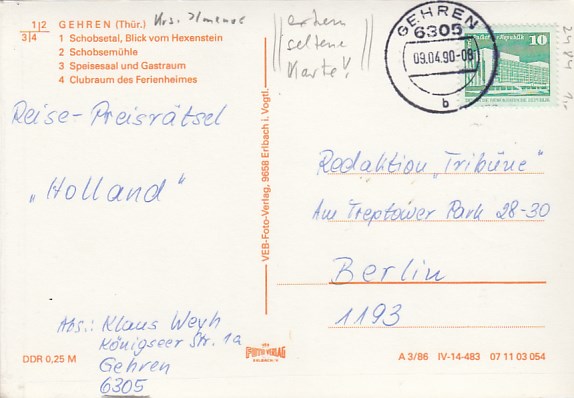 1|2 GEHREN (Thür.) Krs. Ilmenau
3|4 1 Schobsetal, Blick vom Hexenstein
2 Schobsemühle
3 Speisesaal und Gastraum
4 Clubraum des Ferienheimes
extrem
seltene
Karte!
GEHREN
6305
09.04.90-08
b
10
DEUTSCHE DEMOKRATISCHE REPUBLIK
Reise-Preisrätsel
„Holland"
Abs.: Klaus Weyh
Königseer Str. 1a
Gehren
6305
DDR 0,25 M
VEB-Foto-Verlag, 9658 Erlbach i. Vogtl.
Redaktion „Tribüne"
Am Treptower Park 28-30
Berlin
1193
VEB
FOTO-VERLAG
ERLBACH V.
A 3/86 IV-14-483 07 11 03 054